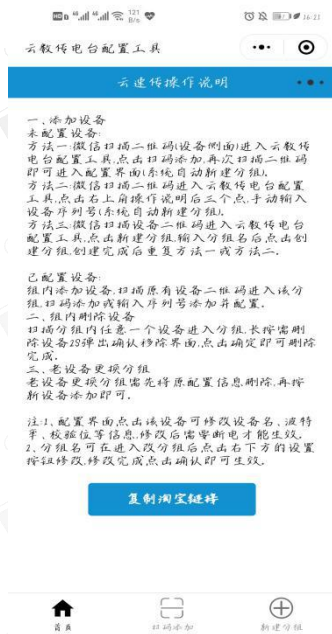 121 B/s 16:21
云数传电台配置工具
云速传操作说明
一、添加设备
未配置设备:
方法一:微信扫描二维码(设备侧面)进入云数传
电台配置工具,点击扫码添加,再次扫描二维码
即可进入配置界面(系统自动新建分组).
方法二:微信扫描二维码进入云数传电台配置
工具,点击右上角操作说明后三个点,手动输入
设备序列号(系统自动新建分组).
方法三:微信扫描设备二维码进入云数传电台
配置工具,点击新建分组,输入分组名后点击创
建分组,创建完成后重复方法一或方法二。
已配置设备:
组内添加设备,扫描原有设备二维码进入该分
组,扫码添加或输入序列号添加并配置。
二、组内删除设备
扫描分组内任意一个设备进入分组,长按需删
除设备2S弹出确认移除界面,点击确定即可删除
完成。
三、老设备更换分组
老设备更换分组需先将原配置信息删除,再按
新设备添加即可.
注:1、配置界面点击该设备可修改设备名、波特
率、校验位等信息,修改后需要断电才能生效。
2、分组名可在进入改分组后点击右下方的设置
按钮修改,修改完成点击确认即可生效。
复制淘宝链接
首页 扫码添加 新建分组